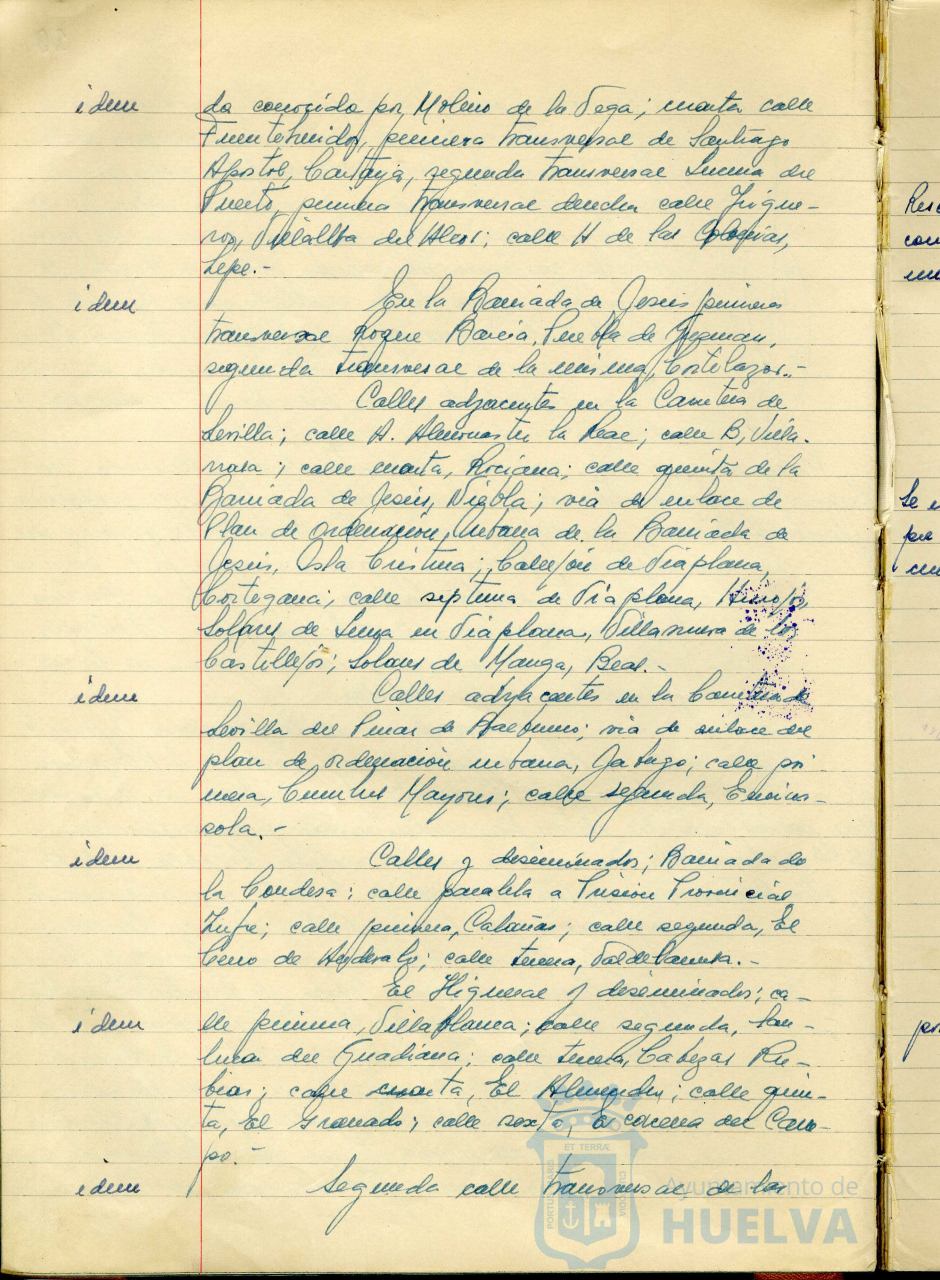 idem
da conocida por Molino de la Vega; cuarta calle
Fuenteheridos, primera transversal de Santiago
Apostol, Cartaya, segunda transversal Lucena del
Puerto, primera transversal derecha calle Jilgue-
ros, Villalba del Alcor; calle H de las Colonias,
Lepe.-
idem
En la Barriada de Jesús primera
transversal Roque Barcia, Puebla de Guzman,
segunda transversal de la misma, Cortelazor.-
Calles adyacentes en la Carretera de
Sevilla; calle A. Almonaster la Real; calle B, Villa-
rrasa; calle cuarta, Rociana; calle quinta de la
Barriada de Jesús, Niebla; via de enlace de
Plan de ordenación urbana de la Barriada de
Jesús, Isla Cristina; Callejón de Viaplana,
Cortegana; calle septima de Viaplana, Hinojos,
Solares de Lema en Viaplana, Villanueva de los
Castillejos; Solares de Manga, Beas.-
idem
Calles adyacentes en la Carretera de
Sevilla del Pinar de Balbueno; via de enlace del
plan de ordenación urbana, Jabugo; calle pri-
mera, Cumbres Mayores; calle segunda, Encina-
sola.-
idem
Calles y diseminados; Barriada de
la Condesa: calle paralela a Prision Provincial
Zufre; calle primera, Calañas; calle segunda, El
Cerro de Andevalo; calle tercera, Valdelamusa.-
El Higueral y diseminados; ca-
idem
lle primera, Villablanca; calle segunda, San-
lucar del Guadiana; calle tercera, Cabezas Ru-
bias; calle cuarta, El Almendro; calle quin-
ta, El Granado; calle sexta, Escacena del Cam-
po.-
idem
Segunda calle transversal de las
ET TERRÆ
PORTUS MARIS
CUSTODIA
Ayuntamiento de
HUELVA